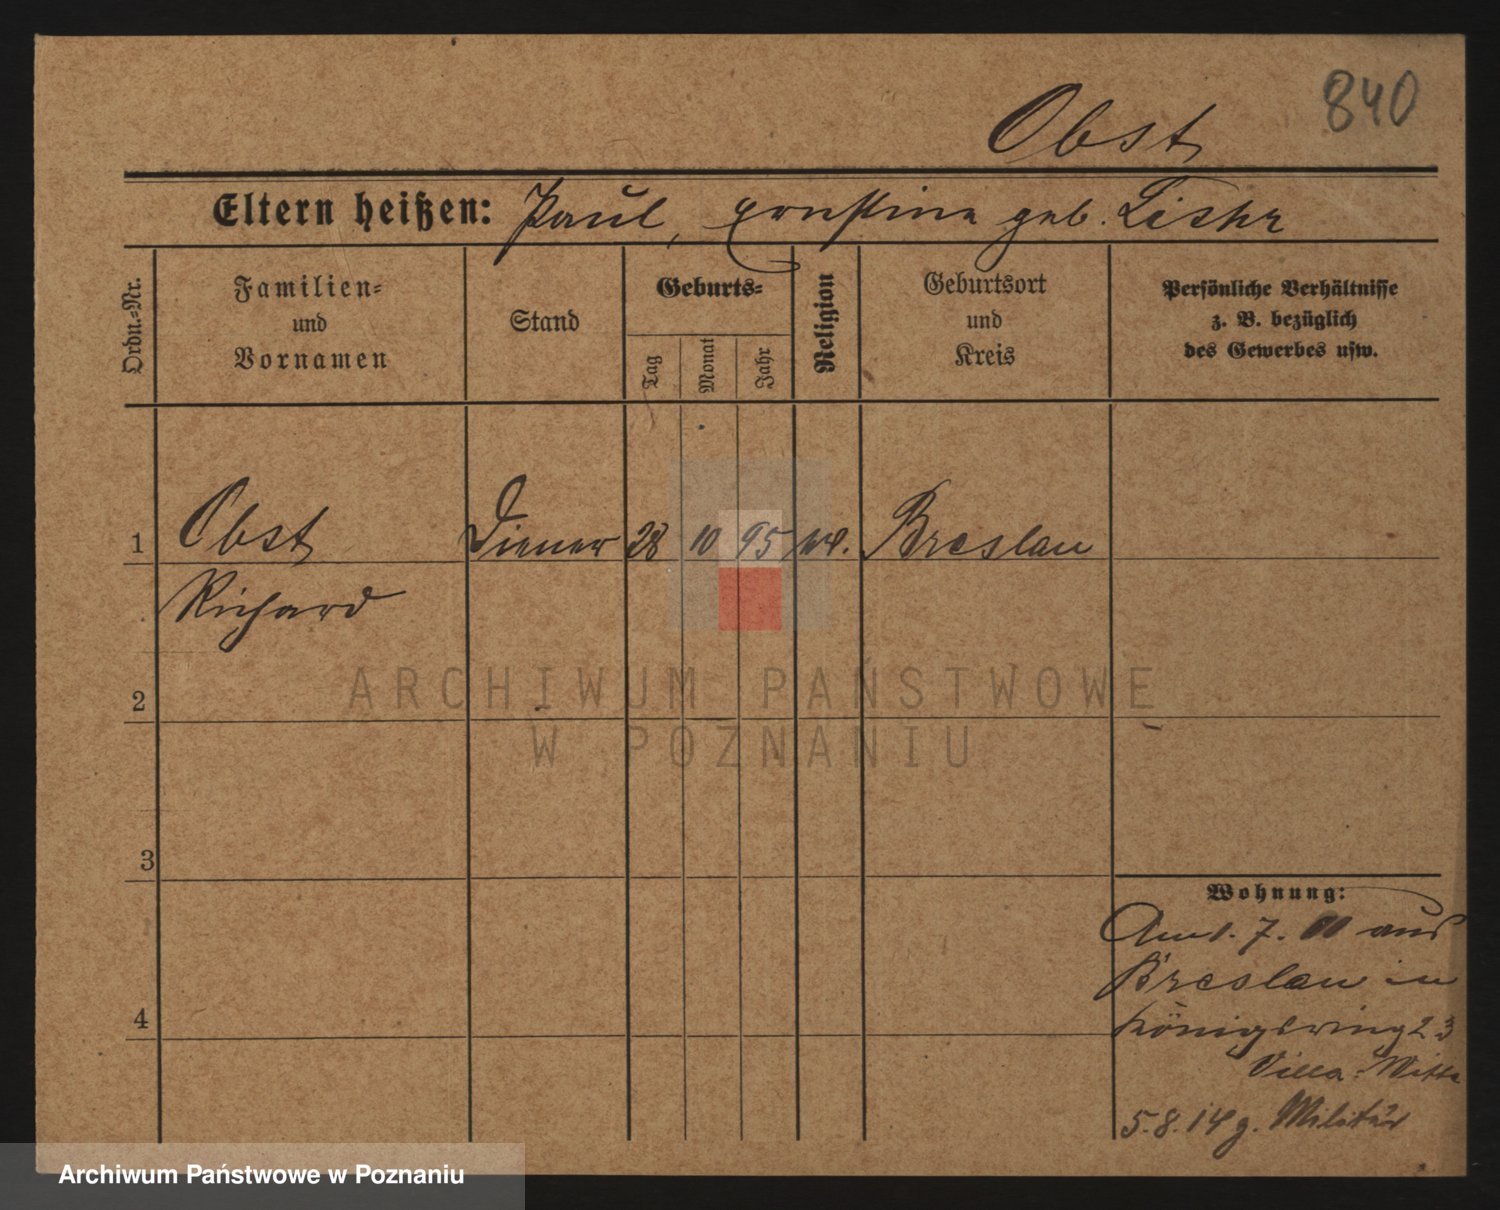 840
Obst
Eltern heißen: Paul, Ernstine geb.
Ordn.-Nr.
Familien-
und
Vornamen
Stand
Geburts-
Tag
Monat
Jahr
Religion
Geburtsort
und
Kreis
Persönliche Verhältnisse
z. B. bezüglich
des Gewerbes usw.
1 Obst Diener 28 10 95 Breslau
Richard
2
3
4
Wohnung:
Am 1. 7. aus
Breslau in
Königsring 23
Villa
5.8.14 z. Militär
ARCHIWUM PAŃSTWOWE
W POZNANIU
Archiwum Państwowe w Poznaniu